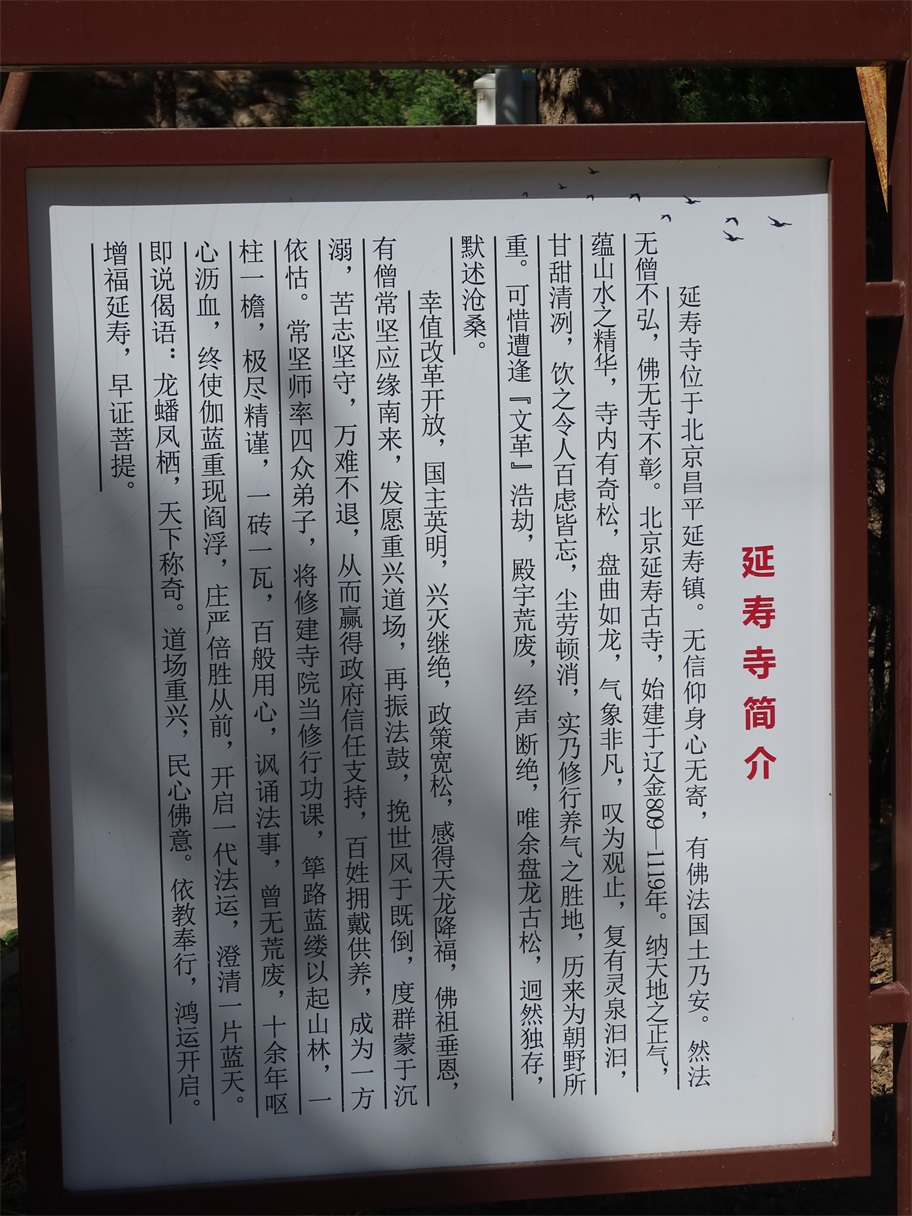 延寿寺简介
延寿寺位于北京昌平延寿镇。无信仰身心无寄，有佛法国土乃安。然法
无僧不弘，佛无寺不彰。北京延寿古寺，始建于辽金809—1119年。纳天地之正气，
蕴山水之精华，寺内有奇松，盘曲如龙，气象非凡，叹为观止，复有灵泉汩汩，
甘甜清冽，饮之令人百虑皆忘，尘劳顿消，实乃修行养气之胜地，历来为朝野所
重。可惜遭逢『文革』浩劫，殿宇荒废，经声断绝，唯余盘龙古松，迥然独存，
默述沧桑。
幸值改革开放，国主英明，兴灭继绝，政策宽松，感得天龙降福，佛祖垂恩，
有僧常坚应缘南来，发愿重兴道场，再振法鼓，挽世风于既倒，度群蒙于沉
溺，苦志坚守，万难不退，从而赢得政府信任支持，百姓拥戴供养，成为一方
依怙。常坚师率四众弟子，将修建寺院当修行功课，筚路蓝缕以起山林，一
柱一檐，极尽精谨，一砖一瓦，百般用心，讽诵法事，曾无荒废，十余年呕
心沥血，终使伽蓝重现阎浮，庄严倍胜从前，开启一代法运，澄清一片蓝天。
即说偈语：龙蟠凤栖，天下称奇。道场重兴，民心佛意。依教奉行，鸿运开启。
增福延寿，早证菩提。